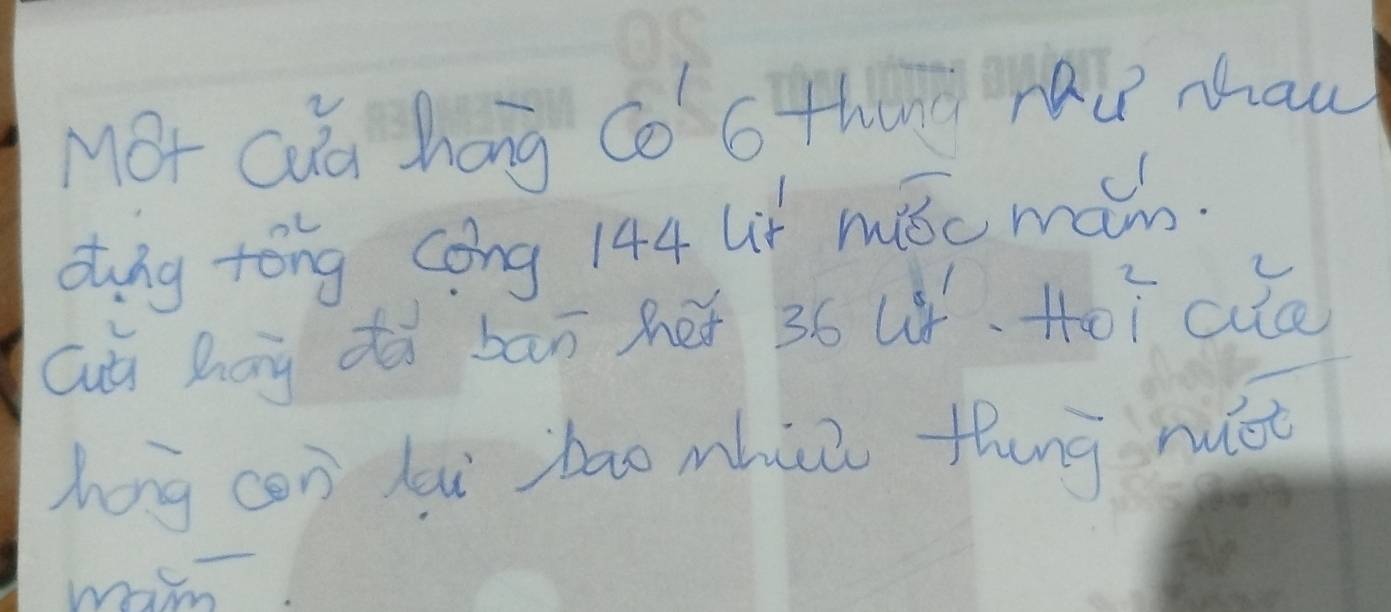 Một cửa hàng có 6 thùng như nhau
đựng tổng cộng 144 lít nước mắm.
Cửa hàng đã bán hết 36 lít. Hỏi cửa
hàng còn lại bao nhiêu thùng nước
mắm.